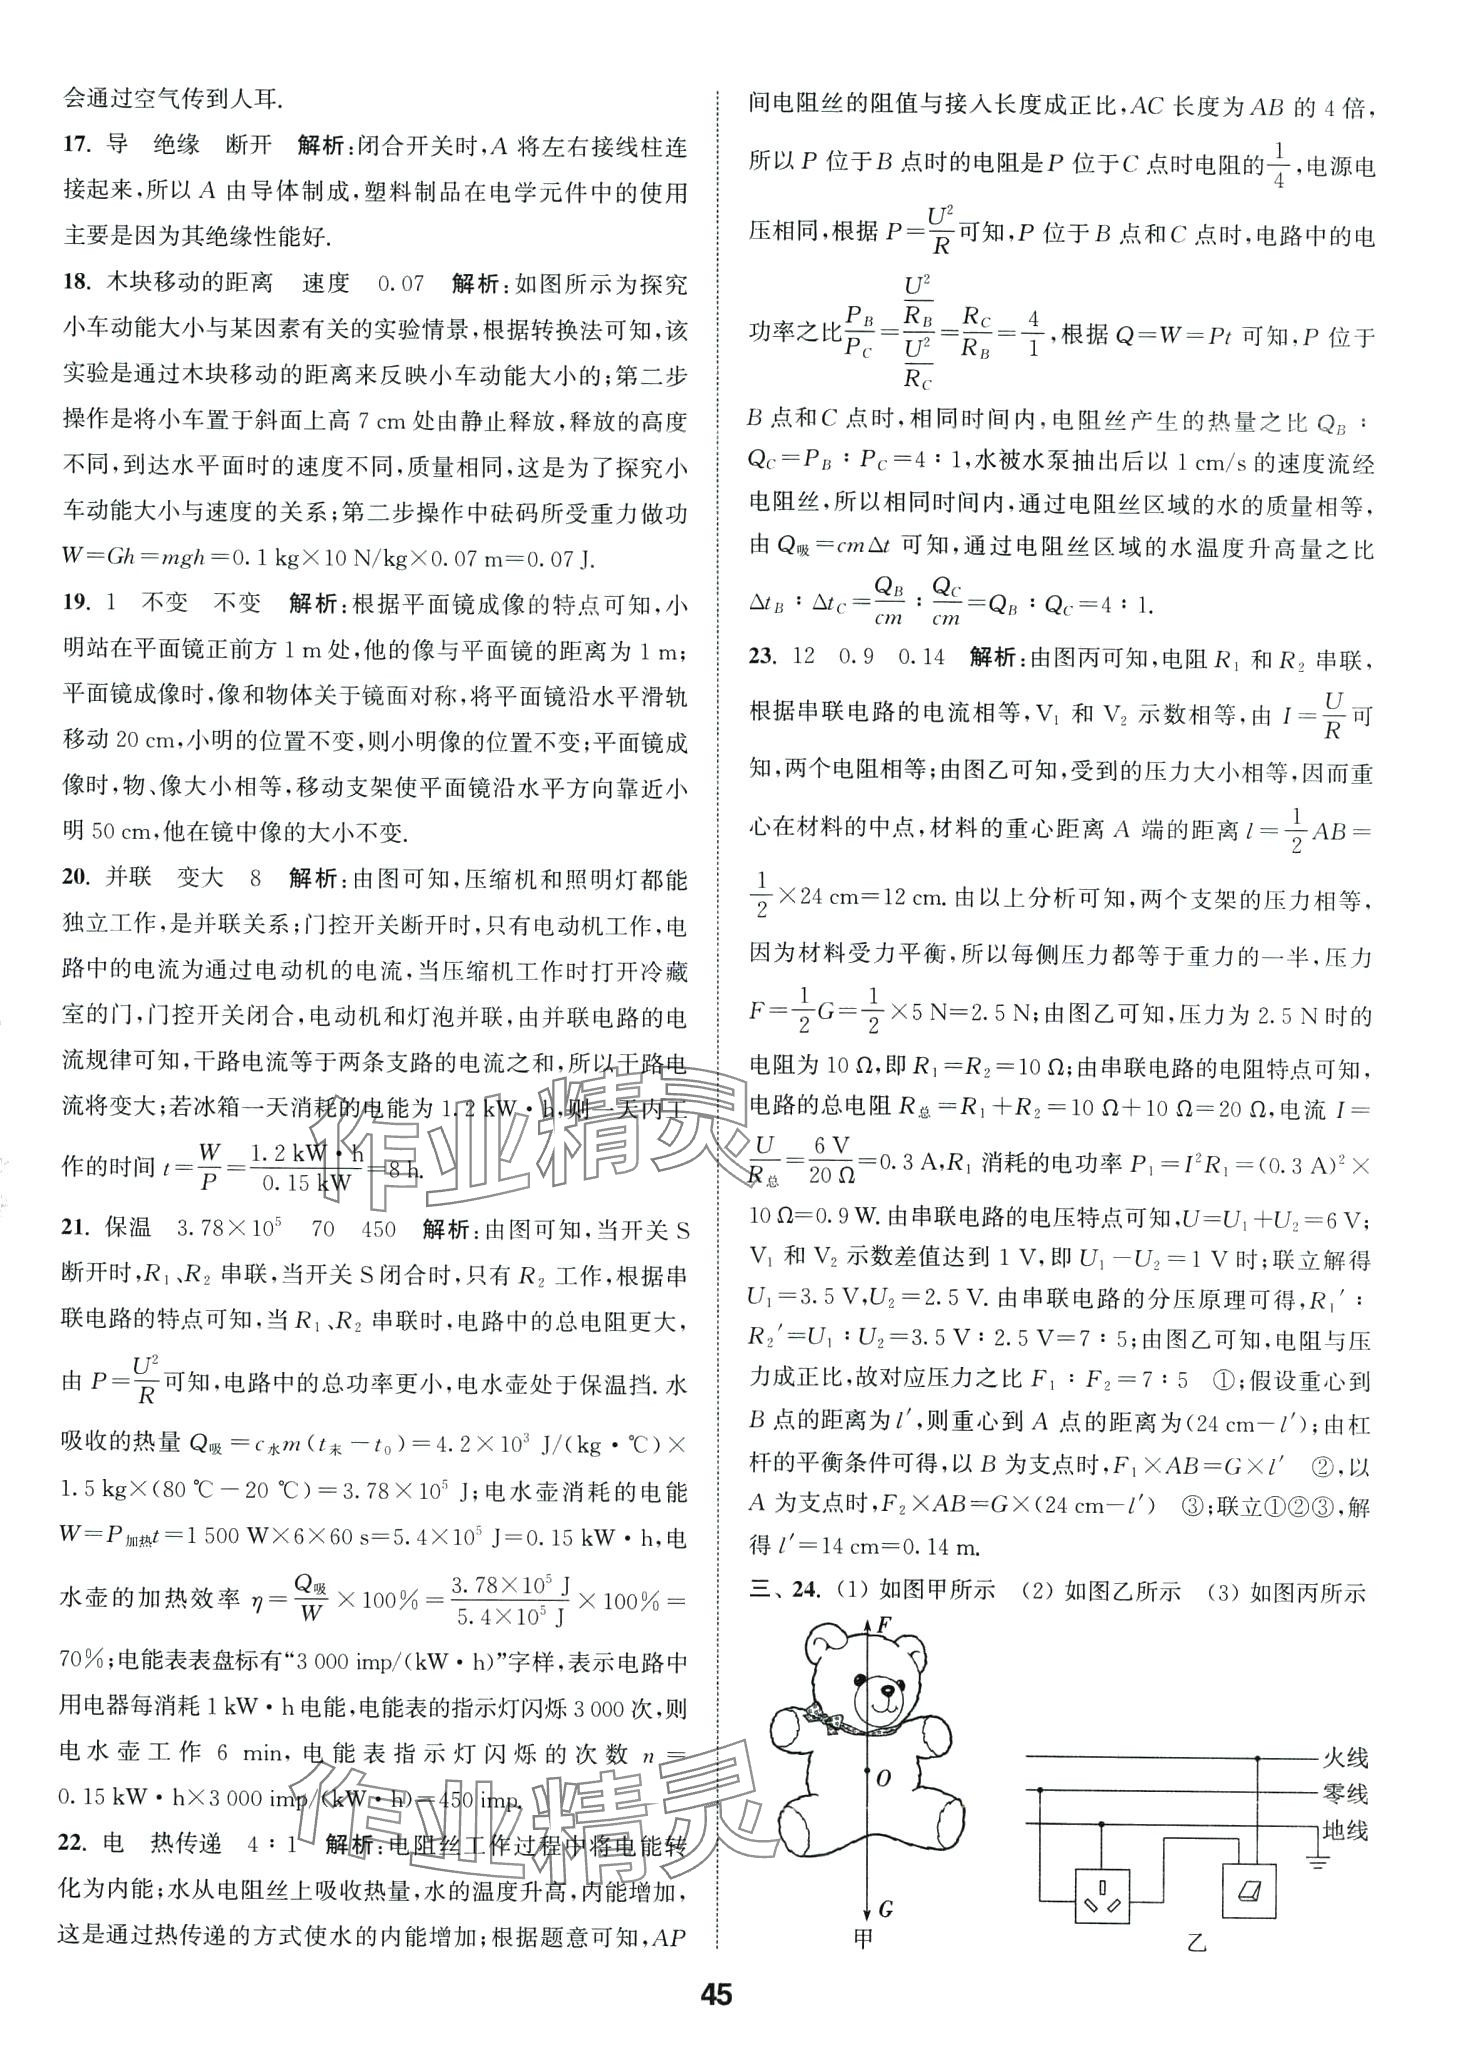 会通过空气传到人耳.
17. 导　绝缘　断开　解析:闭合开关时,A 将左右接线柱连
接起来,所以 A 由导体制成,塑料制品在电学元件中的使用
主要是因为其绝缘性能好.
18. 木块移动的距离　速度　0.07　解析:如图所示为探究
小车动能大小与某因素有关的实验情景,根据转换法可知,该
实验是通过木块移动的距离来反映小车动能大小的;第二步
操作是将小车置于斜面上高 7 cm 处由静止释放,释放的高度
不同,到达水平面时的速度不同,质量相同,这是为了探究小
车动能大小与速度的关系;第二步操作中砝码所受重力做功
W=Gh=mgh=0.1 kg×10 N/kg×0.07 m=0.07 J.
19. 1　不变　不变　解析:根据平面镜成像的特点可知,小
明站在平面镜正前方 1 m 处,他的像与平面镜的距离为 1 m;
平面镜成像时,像和物体关于镜面对称,将平面镜沿水平滑轨
移动 20 cm,小明的位置不变,则小明像的位置不变;平面镜成
像时,物、像大小相等,移动支架使平面镜沿水平方向靠近小
明 50 cm,他在镜中像的大小不变.
20. 并联　变大　8　解析:由图可知,压缩机和照明灯都能
独立工作,是并联关系;门控开关断开时,只有电动机工作,电
路中的电流为通过电动机的电流,当压缩机工作时打开冷藏
室的门,门控开关闭合,电动机和灯泡并联,由并联电路的电
流规律可知,干路电流等于两条支路的电流之和,所以干路电
流将变大;若冰箱一天消耗的电能为 1.2 kW·h,则一天内工
作的时间 t=W/P=1.2 kW·h/0.15 kW=8 h.
21. 保温　3.78×10⁵　70　450　解析:由图可知,当开关 S
断开时,R₁、R₂ 串联,当开关 S 闭合时,只有 R₂ 工作,根据串
联电路的特点可知,当 R₁、R₂ 串联时,电路中的总电阻更大,
由 P=U²/R可知,电路中的总功率更小,电水壶处于保温挡. 水
吸收的热量 Q吸=c水m(t末-t₀)=4.2×10³ J/(kg·℃)×
1.5 kg×(80 ℃-20 ℃)=3.78×10⁵ J;电水壶消耗的电能
W=P加热t=1 500 W×6×60 s=5.4×10⁵ J=0.15 kW·h,电
水壶的加热效率 η=Q吸/W×100%=3.78×10⁵ J/5.4×10⁵ J×100%=
70%;电能表表盘标有“3 000 imp/(kW·h)”字样,表示电路中
用电器每消耗 1 kW·h 电能,电能表的指示灯闪烁 3 000 次,则
电水壶工作 6 min,电能表指示灯闪烁的次数 n=
0.15 kW·h×3 000 imp/(kW·h)=450 imp.
22. 电　热传递　4∶1　解析:电阻丝工作过程中将电能转
化为内能;水从电阻丝上吸收热量,水的温度升高,内能增加,
这是通过热传递的方式使水的内能增加;根据题意可知,AP
间电阻丝的阻值与接入长度成正比,AC 长度为 AB 的 4 倍,
所以 P 位于 B 点时的电阻是 P 位于 C 点时电阻的1/4,电源电
压相同,根据 P=U²/R可知,P 位于 B 点和 C 点时,电路中的电
功率之比P_B/P_C=(U²/R_B)/(U²/R_C)=R_C/R_B=4/1,根据 Q=W=Pt 可知,P 位于
B 点和 C 点时,相同时间内,电阻丝产生的热量之比 Q_B∶
Q_C=P_B∶P_C=4∶1,水被水泵抽出后以 1 cm/s 的速度流经
电阻丝,所以相同时间内,通过电阻丝区域的水的质量相等,
由 Q吸=cmΔt 可知,通过电阻丝区域的水温度升高量之比
Δt_B∶Δt_C=Q_B/cm∶Q_C/cm=Q_B∶Q_C=4∶1.
23. 12　0.9　0.14　解析:由图丙可知,电阻 R₁ 和 R₂ 串联,
根据串联电路的电流相等,V₁ 和 V₂ 示数相等,由 I=U/R可
知,两个电阻相等;由图乙可知,受到的压力大小相等,因而重
心在材料的中点,材料的重心距离 A 端的距离 l=1/2AB=
1/2×24 cm=12 cm. 由以上分析可知,两个支架的压力相等,
因为材料受力平衡,所以每侧压力都等于重力的一半,压力
F=1/2G=1/2×5 N=2.5 N;由图乙可知,压力为 2.5 N 时的
电阻为 10 Ω,即 R₁=R₂=10 Ω;由串联电路的电阻特点可知,
电路的总电阻 R总=R₁+R₂=10 Ω+10 Ω=20 Ω,电流 I=
U/R总=6 V/20 Ω=0.3 A,R₁ 消耗的电功率 P₁=I²R₁=(0.3 A)²×
10 Ω=0.9 W. 由串联电路的电压特点可知,U=U₁+U₂=6 V;
V₁ 和 V₂ 示数差值达到 1 V,即 U₁-U₂=1 V 时;联立解得
U₁=3.5 V,U₂=2.5 V. 由串联电路的分压原理可得,R₁′∶
R₂′=U₁∶U₂=3.5 V∶2.5 V=7∶5;由图乙可知,电阻与压
力成正比,故对应压力之比 F₁∶F₂=7∶5　①;假设重心到
B 点的距离为 l′,则重心到 A 点的距离为(24 cm-l′);由杠
杆的平衡条件可得,以 B 为支点时,F₁×AB=G×l′　②,以
A 为支点时,F₂×AB=G×(24 cm-l′)　③;联立①②③,解
得 l′=14 cm=0.14 m.
三、24. (1) 如图甲所示　(2) 如图乙所示　(3) 如图丙所示
F
O
G
甲
火线
零线
地线
乙
45
作业精灵
作业精灵